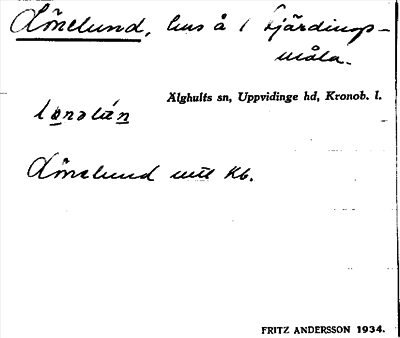 Lönelund, hus å 1 Fjärdings-
måla.
Älghults sn, Uppvidinge hd, Kronob. l.
Lönelund utt Kb.
FRITZ ANDERSSON 1934.